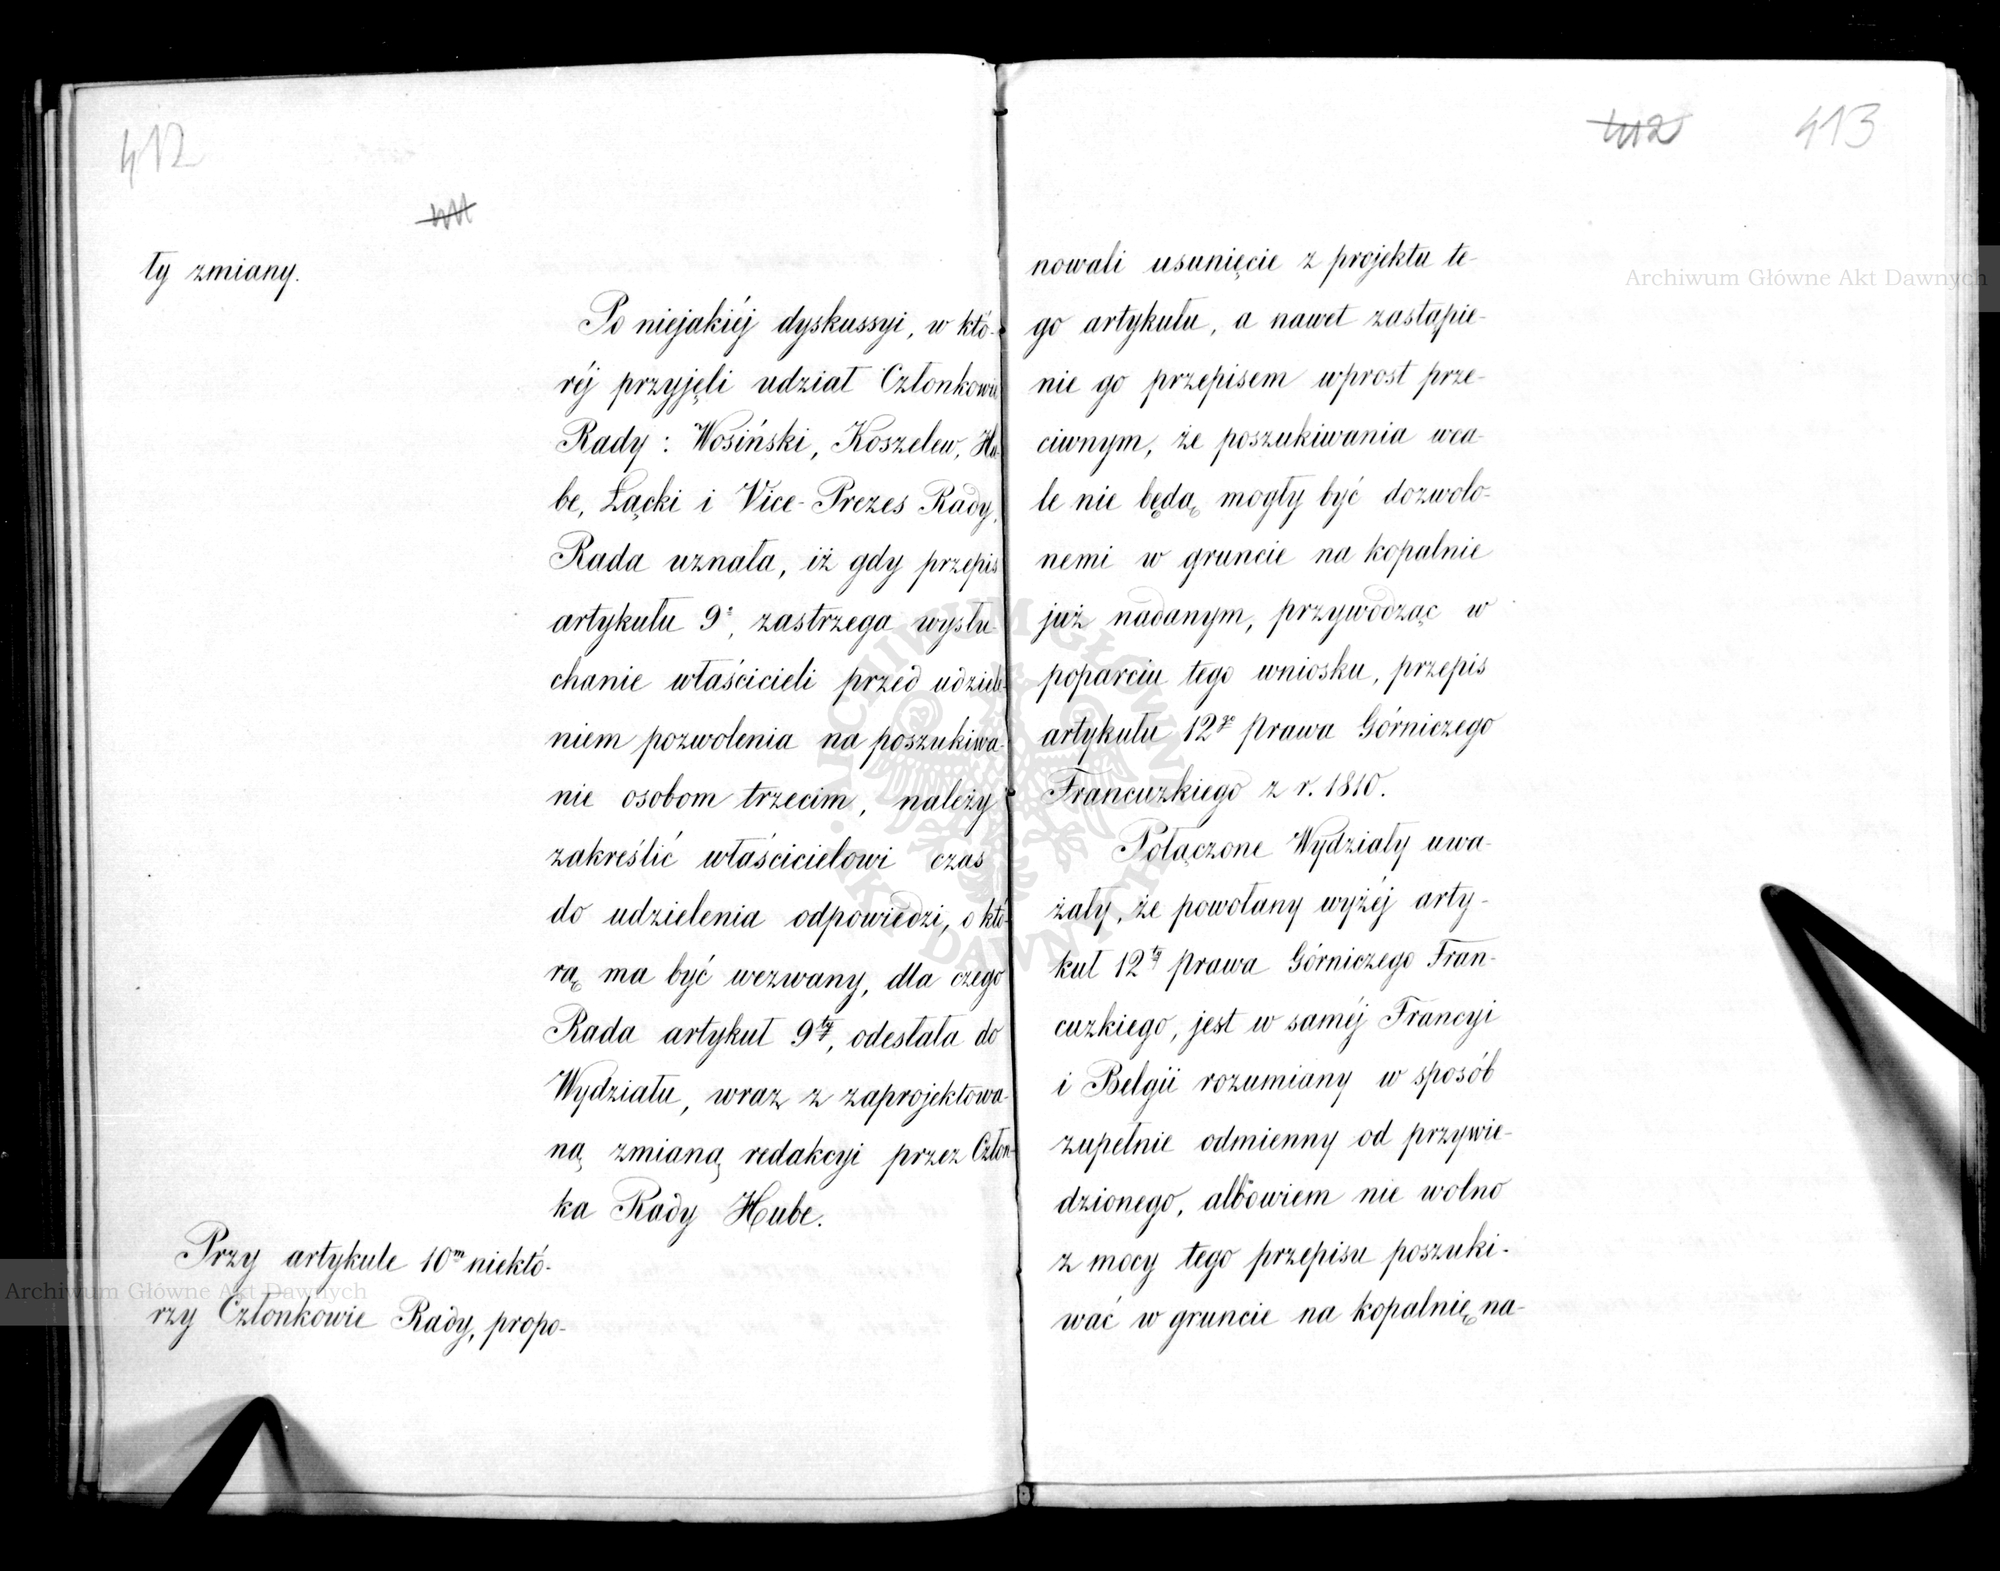 412
411
ły zmiany.
Po niejakiéj dyskussyi, w któ-
réj przyjęli udział Członkowie
Rady: Wosiński, Koszelew, Hu-
be, Łącki i Vice-Prezes Rady,
Rada uznała, iż gdy przepis
artykułu 9º, zastrzega wysłu-
chanie właścicieli przed udziele-
niem pozwolenia na poszukiwa-
nie osobom trzecim, należy
zakreślić właścicielowi czas
do udzielenia odpowiedzi, o któ-
rą ma być wezwany, dla czego
Rada artykuł 9ty, odesłała do
Wydziału, wraz z zaprojektowa-
ną zmianą redakcyi przez Człon-
ka Rady Hube.
Przy artykule 10m niektó-
rzy Członkowie Rady, propo-
412 413
nowali usunięcie z projektu te-
go artykułu, a nawet zastąpie-
nie go przepisem wprost prze-
ciwnym, że poszukiwania wca-
le nie będą mogły być dozwolo-
nemi w gruncie na kopalnie
już nadanym, przywodząc w
poparciu tego wniosku, przepis
artykułu 12go Prawa Górniczego
Francuzkiego z r. 1810.
Połączone Wydziały uwa-
żały, że powołany wyżéj arty-
kuł 12ty Prawa Górniczego Fran-
cuzkiego, jest w saméj Francyi
i Belgii rozumiany w sposób
zupełnie odmienny od przywie-
dzionego, albowiem nie wolno
z mocy tego przepisu poszuki-
wać w gruncie na kopalnię na-
Archiwum Główne Akt Dawnych
Archiwum Główne Akt Dawnych
ARCHIWUM GŁÓWNE AKT DAWNYCH